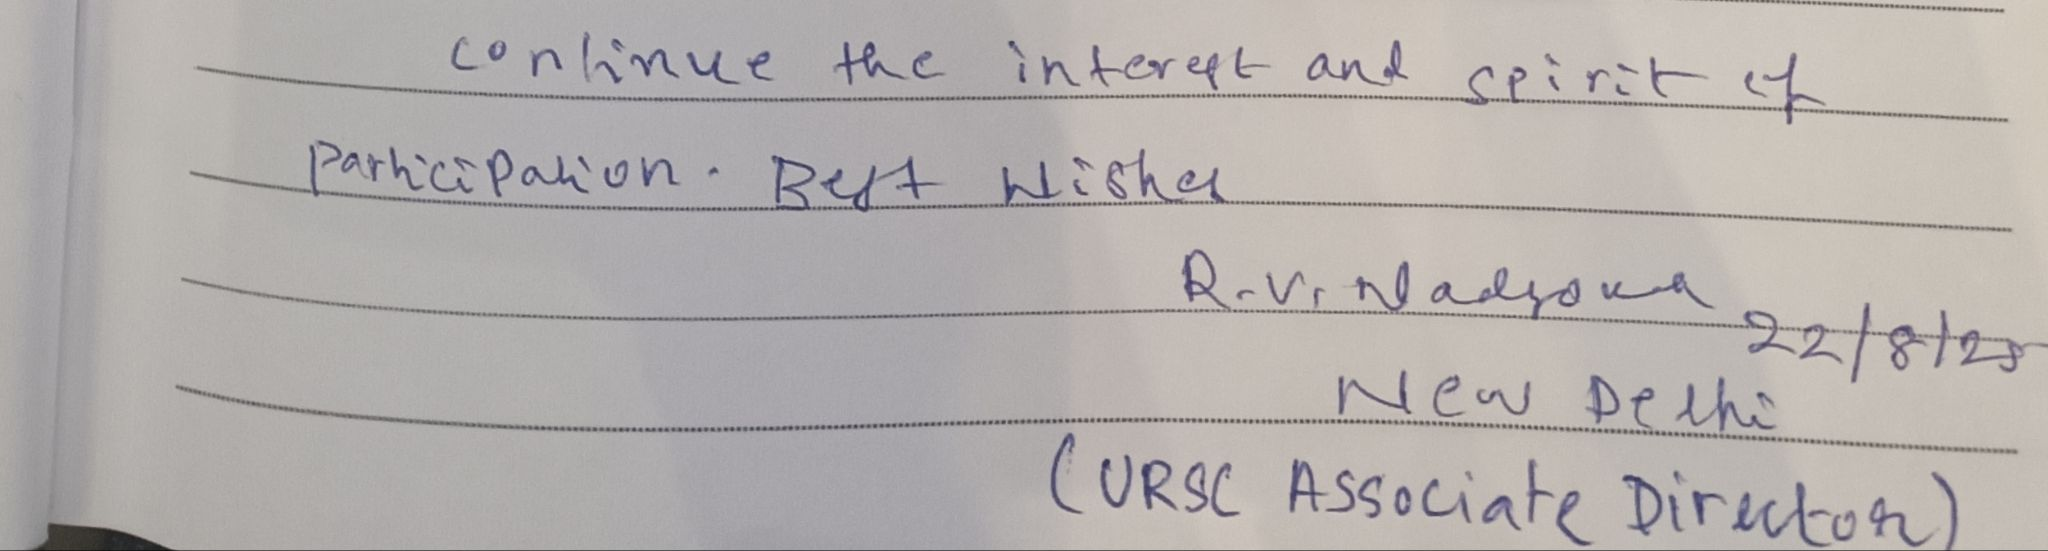 continue the interest and spirit of
participation. Best Wishes
R.V. Nadgouda
22/8/25
New Delhi
(URSC Associate Director)